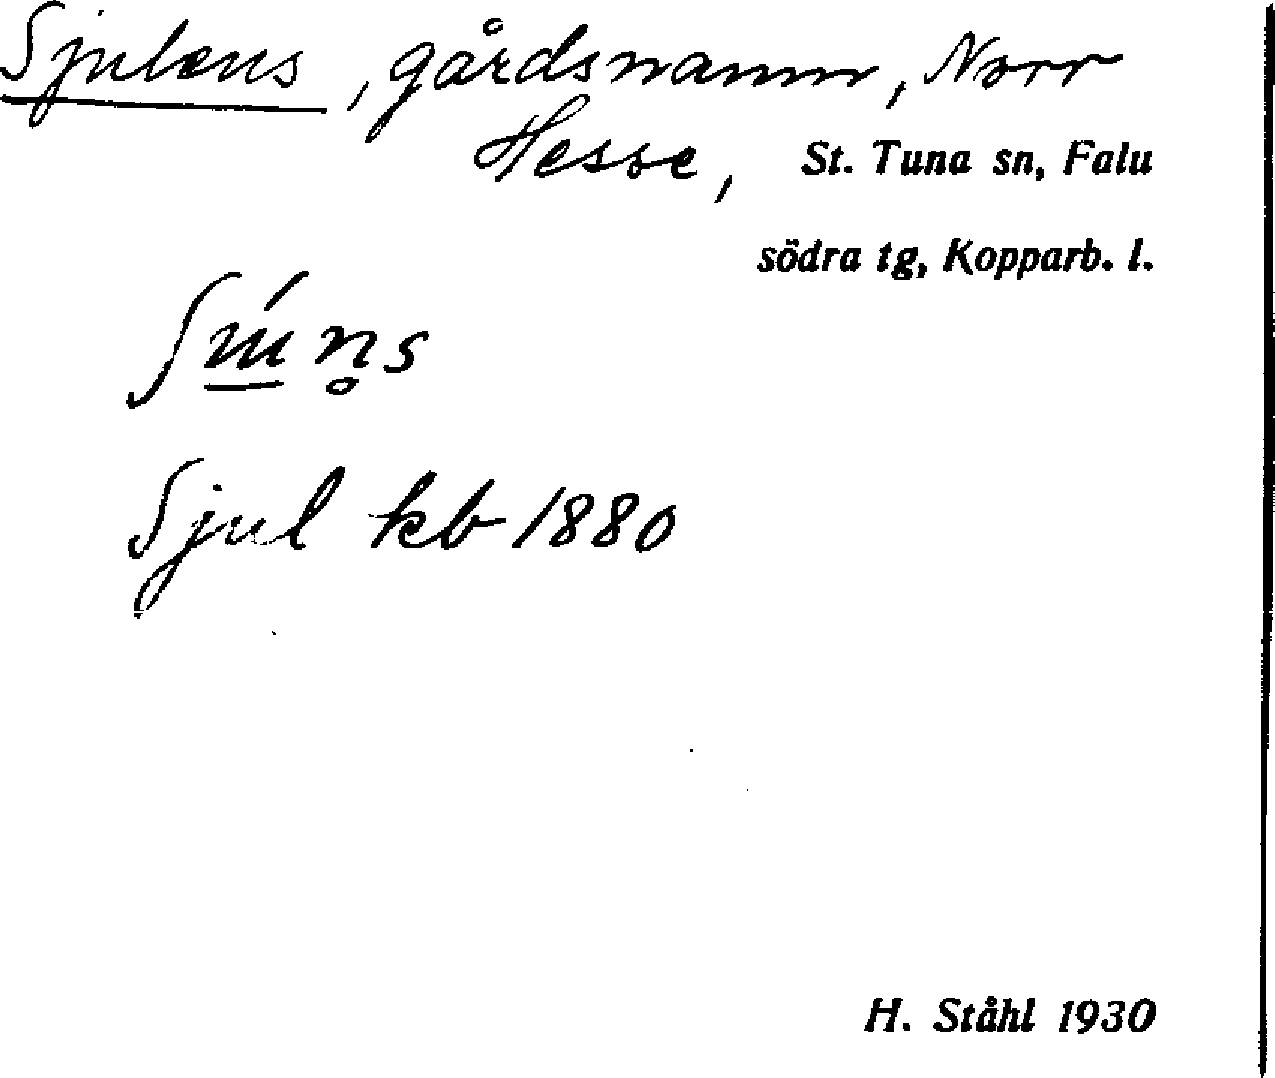 Sjulens, gårdsnamn, Norr
Hesse, St. Tuna sn, Falu
södra tg, Kopparb. l.
Sjul kb 1880
H. Ståhl 1930